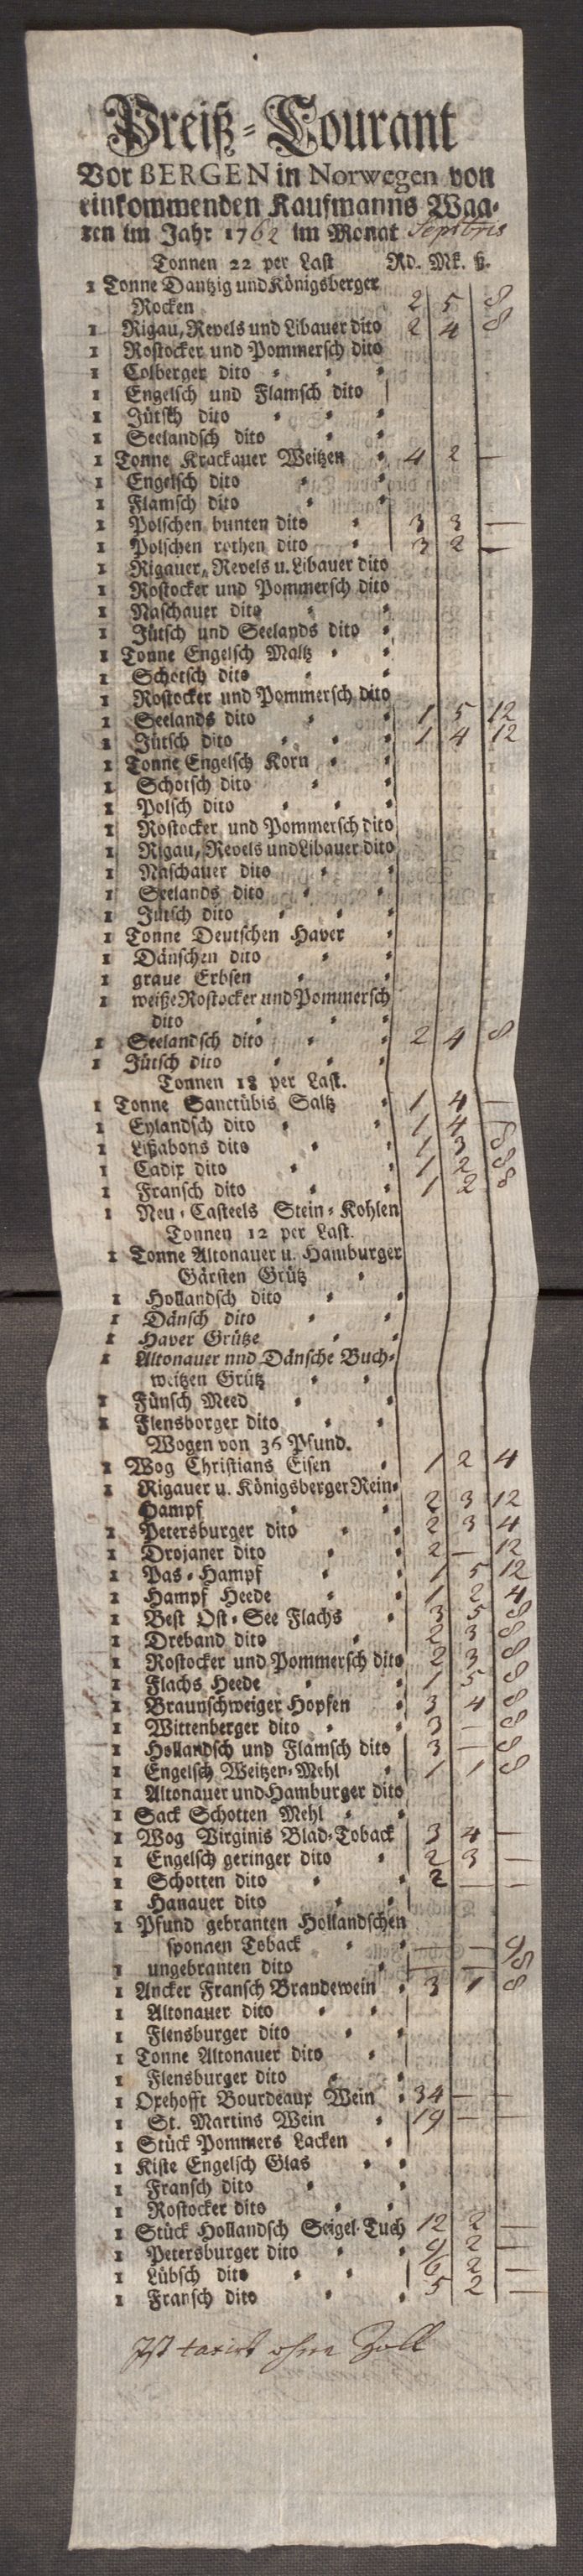 Preiß-Courant
Vor BERGEN in Norwegen von
einkommenden Kaufmanns Waa-
ren im Jahr 1762 im Monat Septbris
Tonnen 22 per Last Rd. Mk. ß.
1 Tonne Dantzig und Königsberger
Rocken 2 5 8
1 Rigau, Revels und Libauer dito 2 4 8
1 Rostocker und Pommersch dito
1 Colberger dito
1 Engelsch und Flamsch dito
1 Jütsch dito
1 Seelandsch dito
1 Tonne Krackauer Weitzen 4 2 —
1 Engelsch dito
1 Flamsch dito
1 Polschen bunten dito 3 3 —
1 Polschen rothen dito 3 2 —
1 Rigauer, Revels u. Libauer dito
1 Rostocker und Pommersch dito
1 Naschauer dito
1 Jütsch und Seelands dito
1 Tonne Engelsch Maltz
1 Schotsch dito
1 Rostocker und Pommersch dito
1 Seelands dito 1 5 12
1 Jütsch dito 1 4 12
1 Tonne Engelsch Korn
1 Schotsch dito
1 Polsch dito
1 Rostocker und Pommersch dito
1 Rigau, Revels und Libauer dito
1 Naschauer dito
1 Seelands dito
1 Jütsch dito
1 Tonne Deutschen Haver
1 Dänschen dito
1 graue Erbsen
1 weiße Rostocker und Pommersch
dito
1 Seelandsch dito 2 4 8
1 Jütsch dito
Tonnen 18 per Last.
1 Tonne Sanctübis Saltz 1 4 —
1 Eylandsch dito 1 4
1 Lißabons dito 1 3 8
1 Cadix dito 1 2 8
1 Fransch dito 1 2 8
1 Neu-Casteels Stein-Kohlen
Tonnen 12 per Last.
1 Tonne Altonauer u. Hamburger
Gärsten Grütz
1 Hollandsch dito
1 Dänsch dito
1 Haver Grütze
1 Altonauer nnd Dänsche Buch-
weitzen Grütz
1 Fünsch Meed
1 Flensborger dito
Wogen von 36 Pfund.
1 Wog Christians Eisen 1 2 4
1 Rigauer u. Königsberger Rein-
Hampf 2 3 12
1 Petersburger dito 2 3 4
1 Drojaner dito 2 — 12
1 Pas-Hampf 1 5 12
1 Hampf Heede 1 2 4
1 Best Ost-See Flachs 3 5 8
1 Dreband dito 2 3 8
1 Rostocker und Pommersch dito 2 3 8
1 Flachs Heede 1 5 8
1 Braunschweiger Hopfen 3 4 8
1 Wittenberger dito 3 — 8
1 Hollandsch und Flamsch dito 3 — 8
1 Engelsch Weitzen-Mehl 1 1 8
1 Altonauer und Hamburger dito
1 Sack Schotten Mehl
1 Wog Virginis Blad-Toback 3 4 —
1 Engelsch geringer dito 2 3 —
1 Schotten dito 2 — —
1 Hanauer dito
1 Pfund gebranten Hollandschen
sponnen Toback — — 9
1 ungebranten dito — — 8
1 Ancker Fransch Brandewein 3 1 8
1 Altonauer dito
1 Flensburger dito
1 Tonne Altonauer dito
1 Flensburger dito
1 Oxehofft Bourdeaux Wein 34 — —
1 St. Martins Wein 19 — —
1 Stück Pommers Lacken
1 Kiste Engelsch Glas
1 Fransch dito
1 Rostocker dito
1 Stück Hollandsch Seigel-Tuch 12 2 —
1 Petersburger dito 9 2 —
1 Lübsch dito 6 2 —
1 Fransch dito 5 2 —
Ist taxirt ohne Zoll